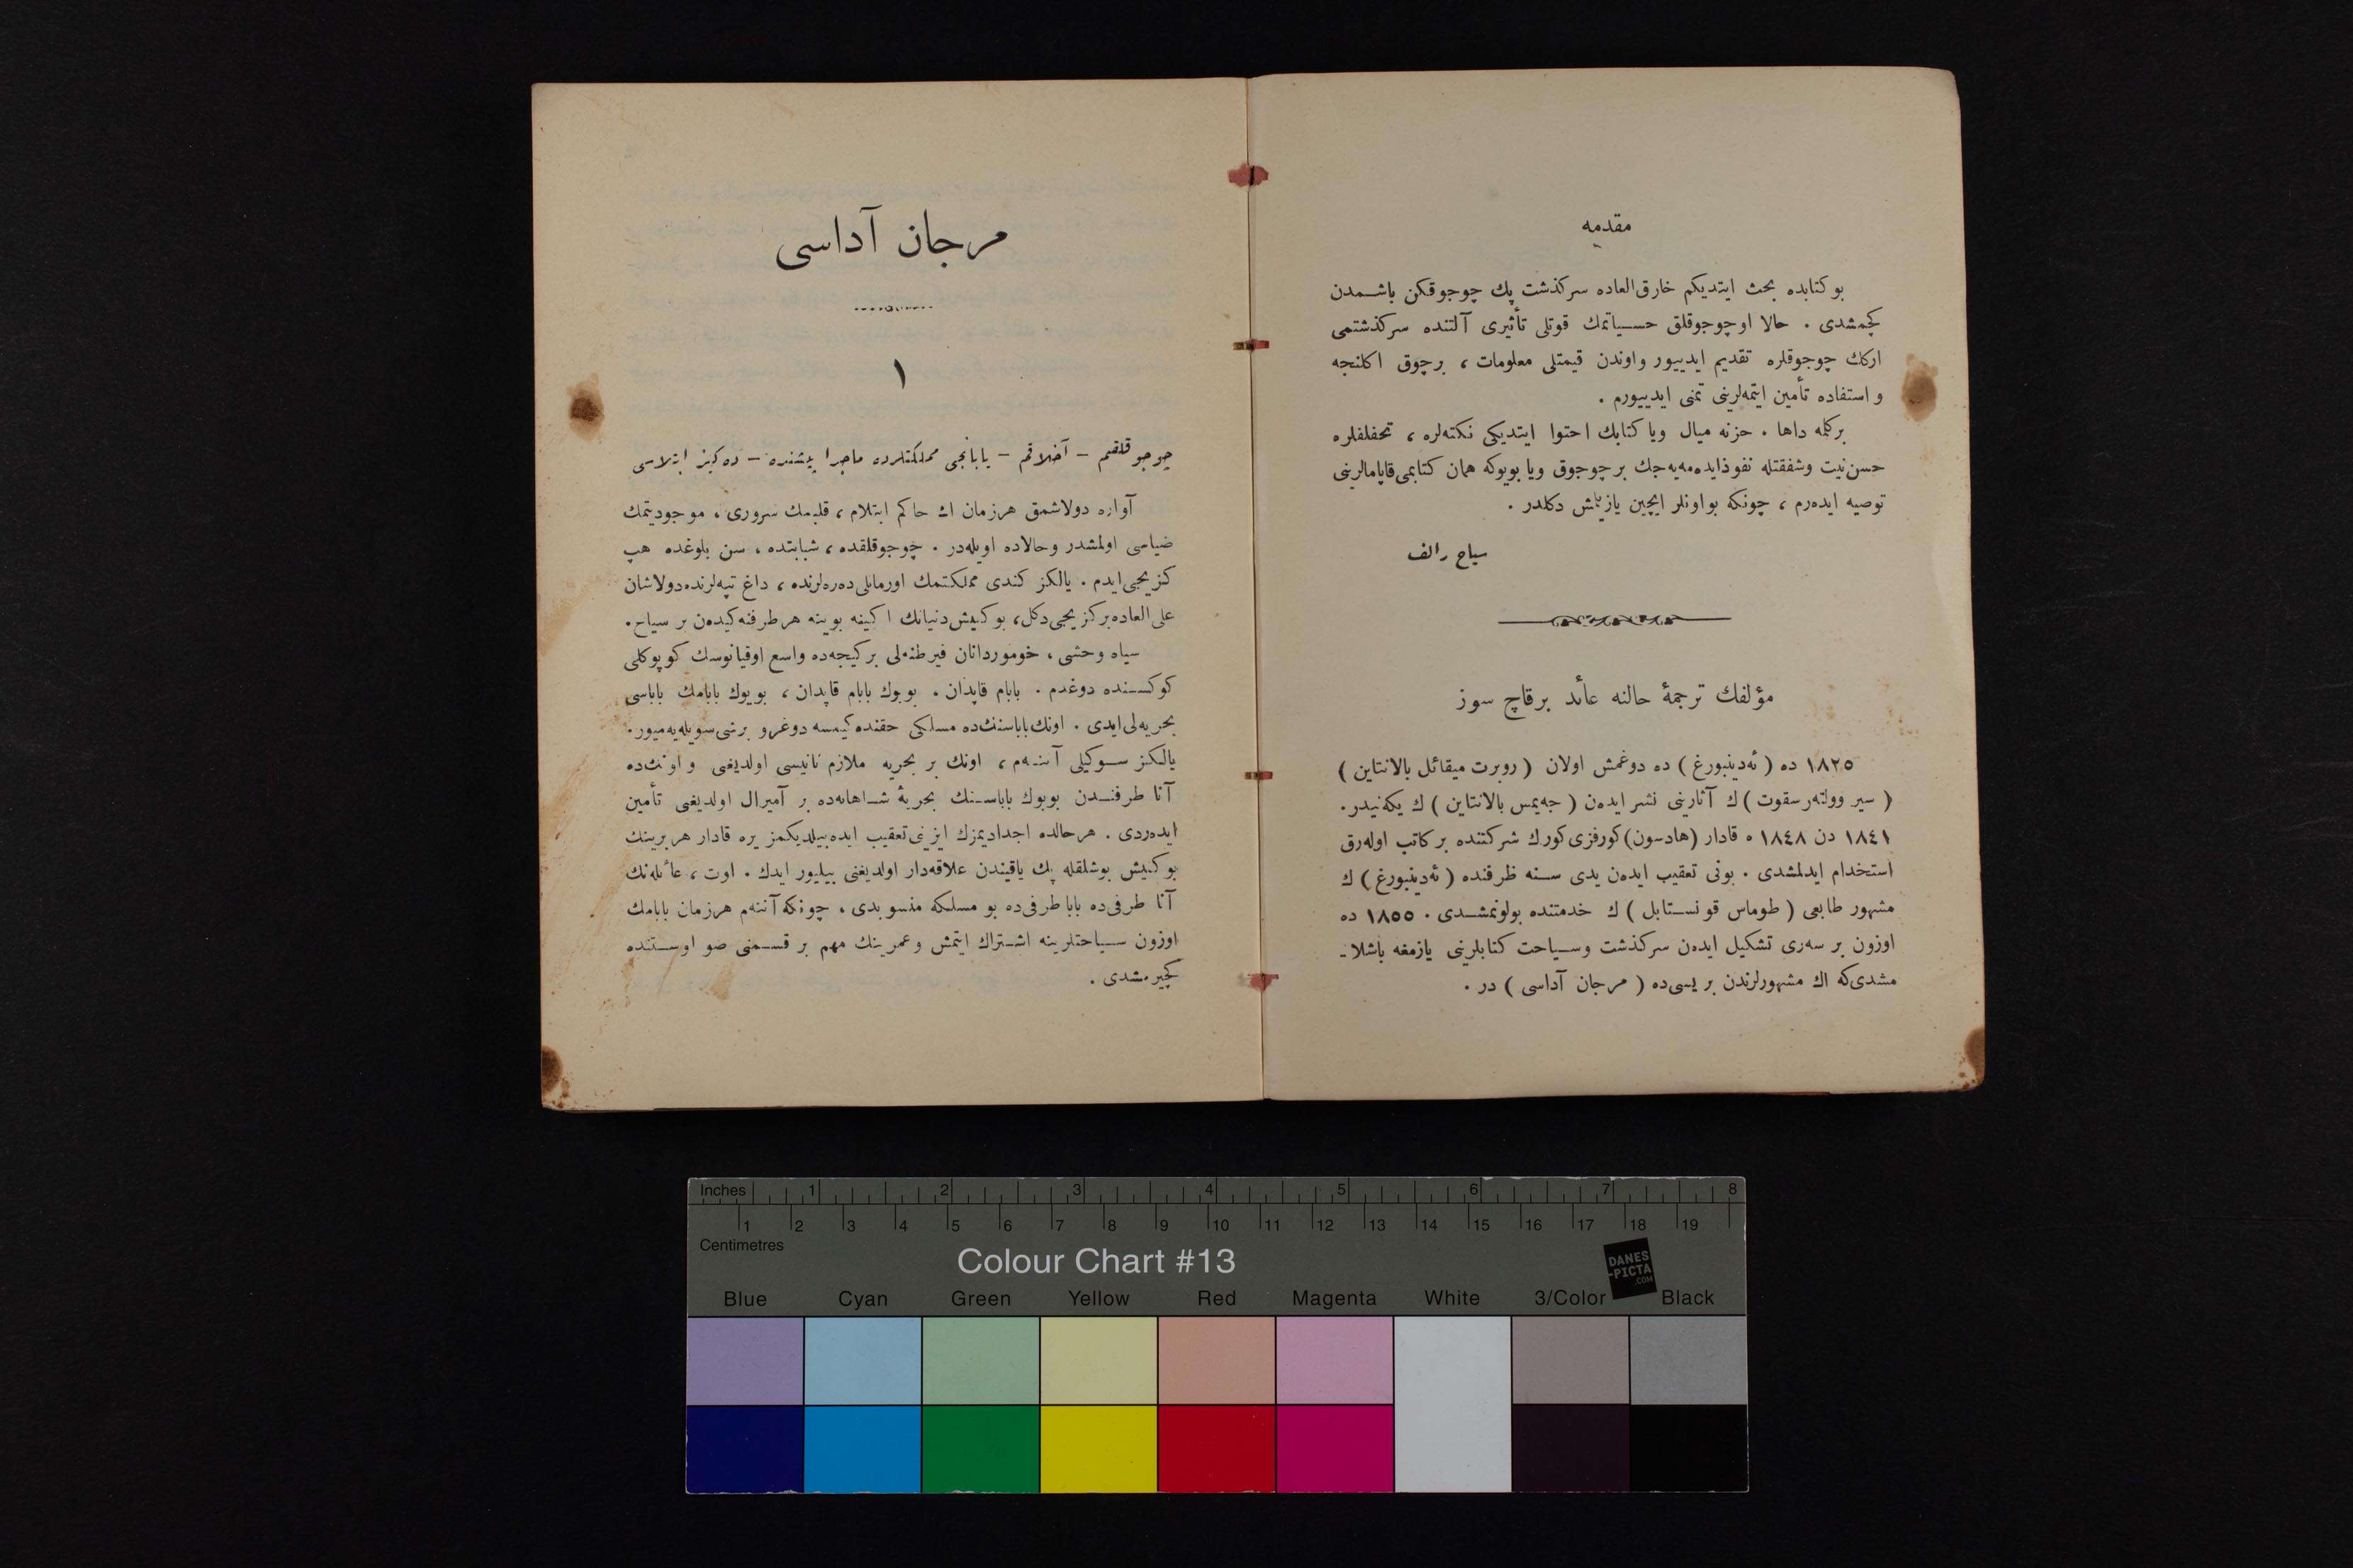 مقدمه
بو كتابده بحث ايتديكم خارق‌العاده سركذشت پك چوجوقكن باشمدن
كچمشدى . حالا او چوجوقلق حسياتمك قوتلى تأثيرى آلتنده سركذشتمى
اركك چوجوقلره تقديم ايدييور واوندن قيمتلى معلومات ، برچوق اكلنجه
و استفاده تأمين ايتمه‌لرينى تمنى ايدييورم .
بركلمه داها . حزنه ميال ويا كتابك احتوا ايتديكى نكته‌لره ، تحفلقلره
حسن‌نيت وشفقتله نفوذ ايده‌مه‌يه‌جك بر چوجوق ويا بويوكه همان كتابمى قاپامالرينى
توصيه ايده‌رم ، چونكه بو اونلر ايچين يازيلمش دكلدر .
سياح رالف
مؤلفك ترجمهٔ حالنه عائد برقاچ سوز
١٨٢٥ ده ( ئه‌دينبورغ ) ده دوغمش اولان ( روبرت ميقائل بالانتاين )
( سير وولته‌ر سقوت ) ك آثارينى نشر ايده‌ن ( جه‌يمس بالانتاين ) ك يكه‌نيدر .
١٨٤١ دن ١٨٤٨ ه قادار (هادسون) كورفزى كورك شركتنده بر كاتب اوله‌رق
استخدام ايدلمشدى . بونى تعقيب ايده‌ن يدى سنه ظرفنده ( ئه‌دينبورغ ) ك
مشهور طابعى ( طوماس قونستابل ) ك خدمتنده بولونمشدى . ١٨٥٥ ده
اوزون بر سه‌رى تشكيل ايده‌ن سركذشت وسياحت كتابلرينى يازمغه باشلا -
مشدى كه اك مشهورلرندن بريسى ده ( مرجان آداسى ) در .
مرجان آداسى
١
چوجوقلقم – آخلاقم – يابانجى مملكتلرده ماجرا پيشنده – ده‌كيز ابتلاسى
آواره دولاشمق هرزمان اك حاكم ابتلام ، قلبمك سرورى ، موجوديتمك
ضياسى اولمشدر وحالاده اويله‌در . چوجوقلقده ، شبابتده ، سن بلوغده هپ
كزيجى ايدم . يالكز كندى مملكتمك اورمانلى ده‌ره‌لرنده ، داغ تپه‌لرنده دولاشان
على‌العاده بركزيجى دكل ، بو كنيش دنيانك اكينه بوينه هرطرفنه كيده‌ن بر سياح .
سياه وحشى ، خوموردانان فيرطنه‌لى بركيجه‌ده واسع اوقيانوسك كوپوكلى
كوكسنده دوغدم . بابام قاپدان ، بويوك بابام قاپدان ، بويوك بابامك باباسى
بحريه‌لى ايدى . اونك باباسنك‌ده مسلكى حقنده كيمسه دوغرو برشى سويله‌يه‌ميور .
يالكز سوكيلى آننه‌م ، اونك بر بحريه ملازم ثانيسى اولديغنى و اونك‌ده
آنا طرفندن بويوك باباسنك بحريهٔ شاهانه‌ده بر آميرال اولديغنى تأمين
ايده‌ردى . هرحالده اجداديمزك ايزينى تعقيب ايده‌بيلديكمز يره قادار هر برينك
بو كنيش بوشلقله پك ياقيندن علاقه‌دار اولديغنى بيليور ايدك . اوت ، عائله‌نك
آنا طرفى‌ده بابا طرفى‌ده بو مسلكه منسوبدى ، چونكه آننه‌م هرزمان بابامك
اوزون سياحتلرينه اشتراك ايتمش وعمرينك مهم بر قسمنى صو اوستنده
كچيرمشدى .
Inches 1 2 3 4 5 6 7 8
1 2 3 4 5 6 7 8 9 10 11 12 13 14 15 16 17 18 19
Centimetres
Colour Chart #13
DANES
-PICTA
.COM
Blue Cyan Green Yellow Red Magenta White 3/Color Black